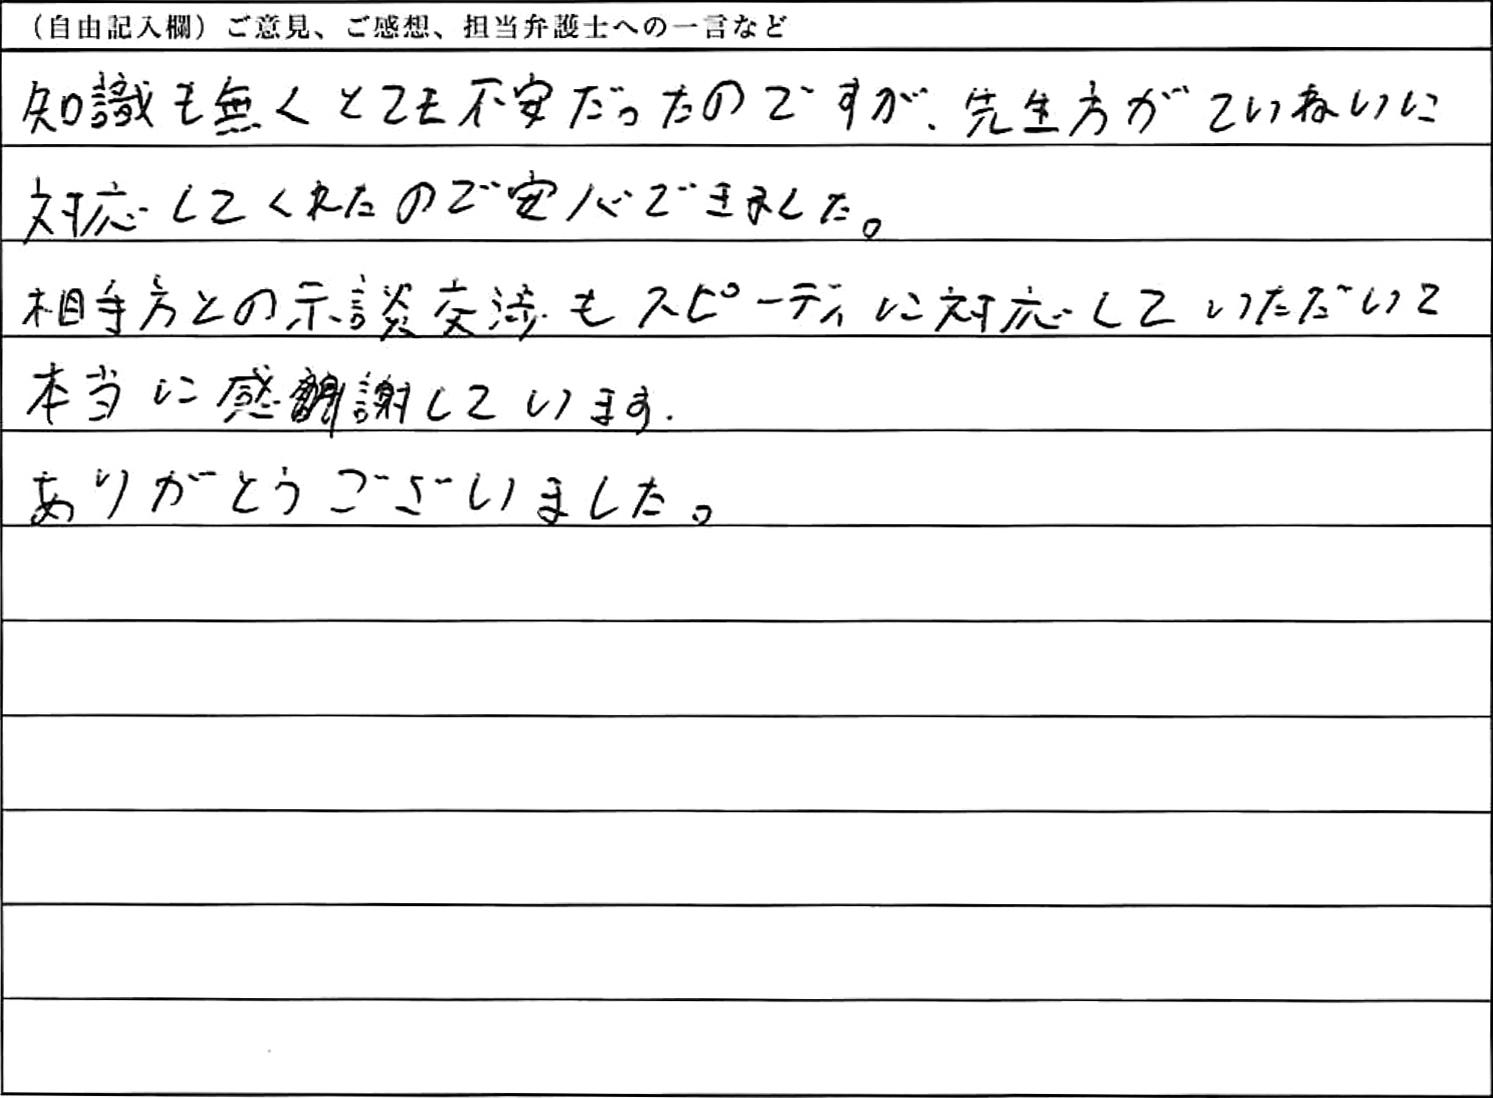 （自由記入欄）ご意見、ご感想、担当弁護士への一言など
知識も無くとても不安だったのですが、先生方がていねいに
対応してくれたので安心できました。
相手方との示談交渉もスピーディに対応していただいて
本当に感謝しています.
ありがとうございました。